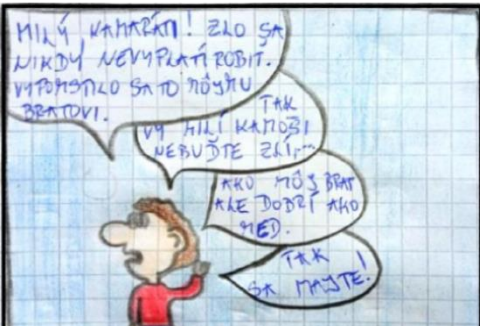 MILÝ KAMARÁTI! ZLO SA
NIKDY NEVYPLATÍ ROBIT.
VYPOMSTILO SA TO MÔJMU
BRATOVI.
TAK
VY MILÍ KAMOŠI
NEBUĎTE ZLÍ,...
AKO MÔJ BRAT
ALE DOBRÍ AKO
MED.
TAK
SA MAJTE!